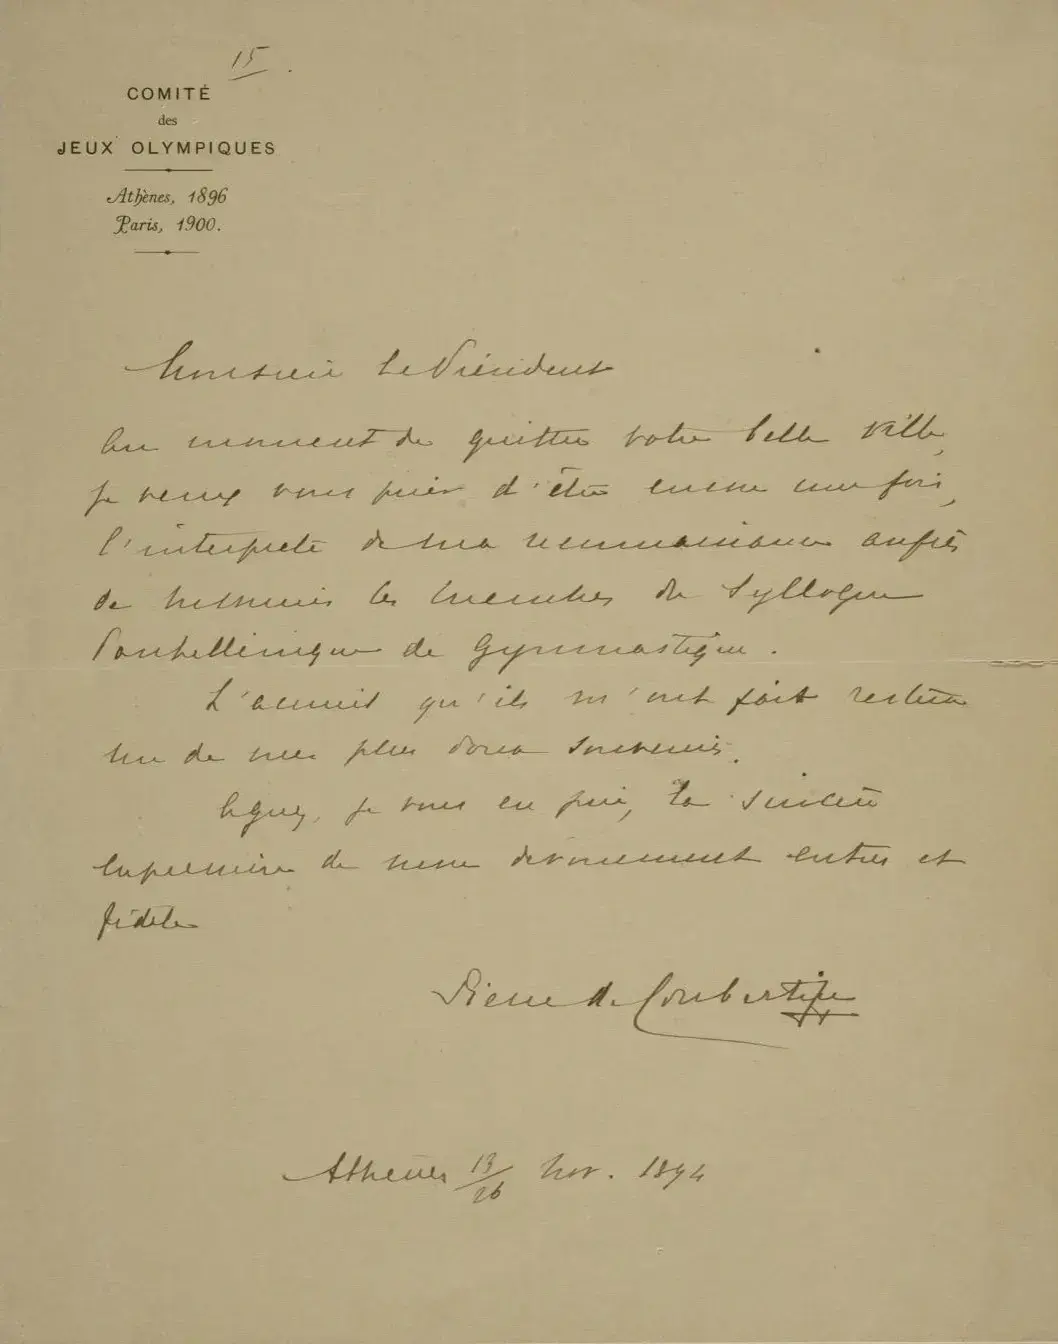 15
COMITÉ
des
JEUX OLYMPIQUES
Athènes, 1896
Paris, 1900.
Monsieur le Président
Au moment de quitter votre belle ville,
je veux vous prier d'être encore une fois,
l'interprète de ma reconnaissance auprès
de Messieurs les membres du Syllogue
Panhellénique de Gymnastique.
L'accueil qu'ils m'ont fait restera
un de mes plus doux souvenirs.
Agréez, je vous en prie, la sincère
expression de mon dévouement entier et
fidèle
Pierre de Coubertin
Athènes 13/26 Nov. 1894